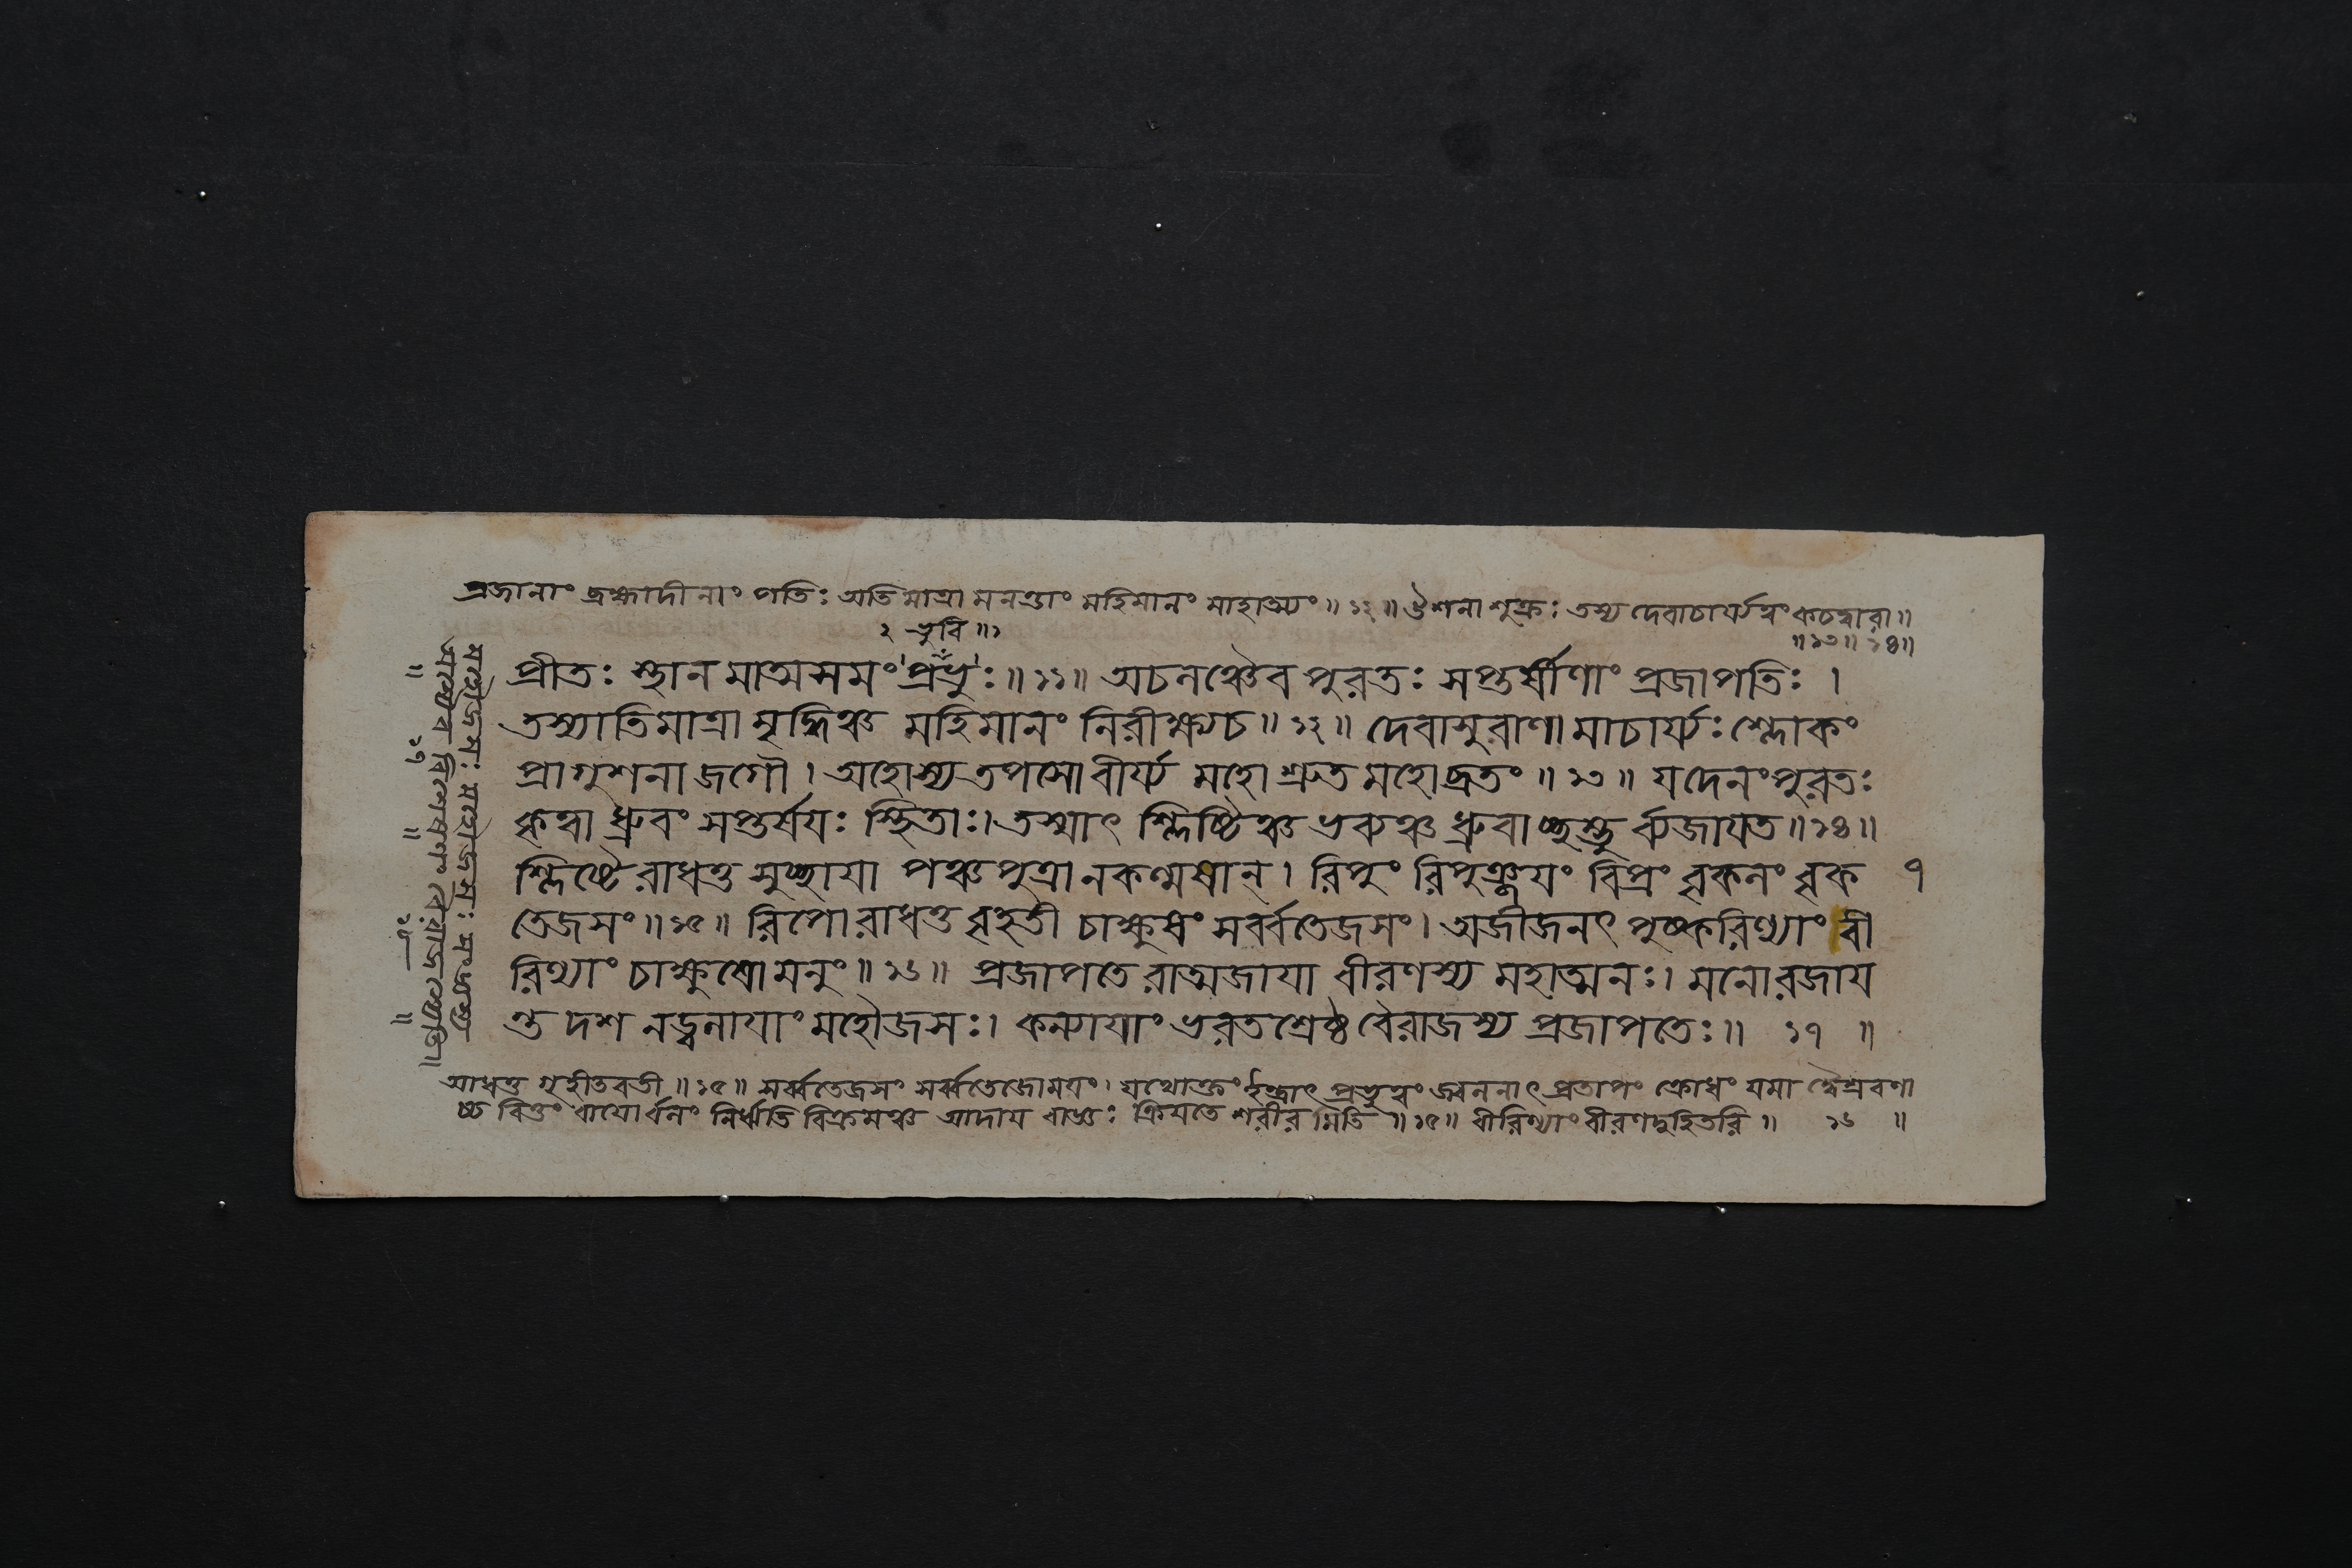 প্রজানাং ব্রহ্মাদীনাং পতিঃ অতিমাত্রামনন্তাং মহিমানং মাহাত্ম্যং॥ ১২॥ ঔশনা শুক্রঃ তস্য দেবাচার্য্যত্বং কচদ্বারা॥
॥১৩॥ ১৪॥
২ ভুবি॥১
প্রীতঃ স্থানমাত্মসমং প্রভুঃ॥১১॥ অচলঞ্চৈব পুরতঃ সপ্তর্ষীণাং প্রজাপতিঃ।
তস্যাতিমাত্রামৃদ্ধিঞ্চ মহিমানং নিরীক্ষ্য চ॥ ১২॥ দেবাসুরাণামাচার্য্যঃ শ্লোকং
প্রাগুশনা জগৌ। অহোস্য তপসো বীর্য্যমহো শ্রুতমহোদ্ভুতং॥ ১৩॥ যদেনং পুরতঃ
কৃত্বা ধ্রুবং সপ্তর্ষয়ঃ স্থিতাঃ। তস্মাৎ শ্লিষ্টিঞ্চ ভব্যঞ্চ ধ্রুবাচ্ছম্ভুর্ব্যজায়ত॥১৪॥
শ্লিষ্টেরাধত্ত সুচ্ছায়া পঞ্চপুত্রানকল্মষান্। রিপুং রিপুঞ্জয়ং বিপ্রং বৃকলং বৃক
৭
তেজসং॥১৫॥ রিপোরাধত্ত বৃহতী চাক্ষুষং সর্ব্বতেজসং। অজীজনৎ পুষ্করিণ্যাং বী
রিণ্যাং চাক্ষুষো মনুং॥ ১৬॥ প্রজাপতেরাত্মজায়া বীরণস্য মহাত্মনঃ। মনোরজায়
ন্ত দশ নড্বলায়াং মহৌজসঃ। কন্যায়াং ভরতশ্রেষ্ঠ বৈরাজস্য প্রজাপতেঃ॥ ১৭ ॥
আধত্ত গৃহীতবতী॥১৫॥ সর্ব্বতেজসং সর্ব্বতেজোময়ং। যথোক্তং ইন্দ্রাৎ প্রভুত্বং জ্বলনাৎ প্রতাপং ক্রোধং যমাদ্বৈশ্রবণা
চ্চ বিত্তং আদায় রাজ্ঞঃ ক্রিয়তে শরীরমিতি॥১৫॥ বীরিণ্যাং বীরণদুহিতরি॥ ১৬ ॥